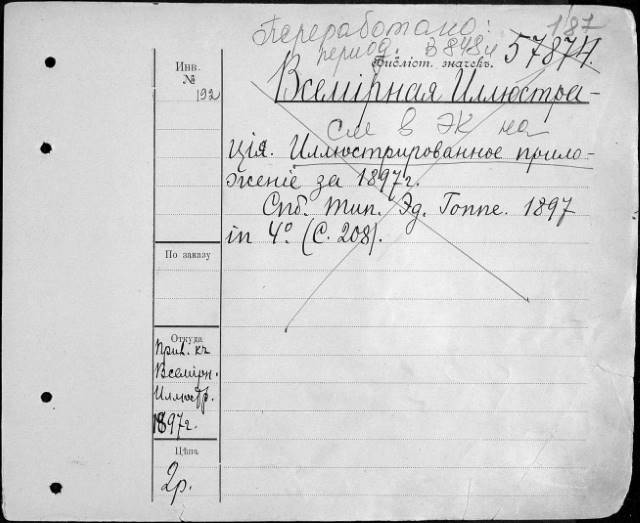 Переработано:
187
период. В848ч
Библіот. значекъ.
57874.
Инв.
№
192
Всемірная Иллюстра-
См в ЭК на
ція. Иллюстрированное прило-
женіе за 1897г.
Спб. Тип. Эд. Гоппе. 1897
in 4º. (С. 208).
По заказу
Откуда
Прил. къ
Всемірн.
Иллюстр.
1897г.
Цѣна
2р.